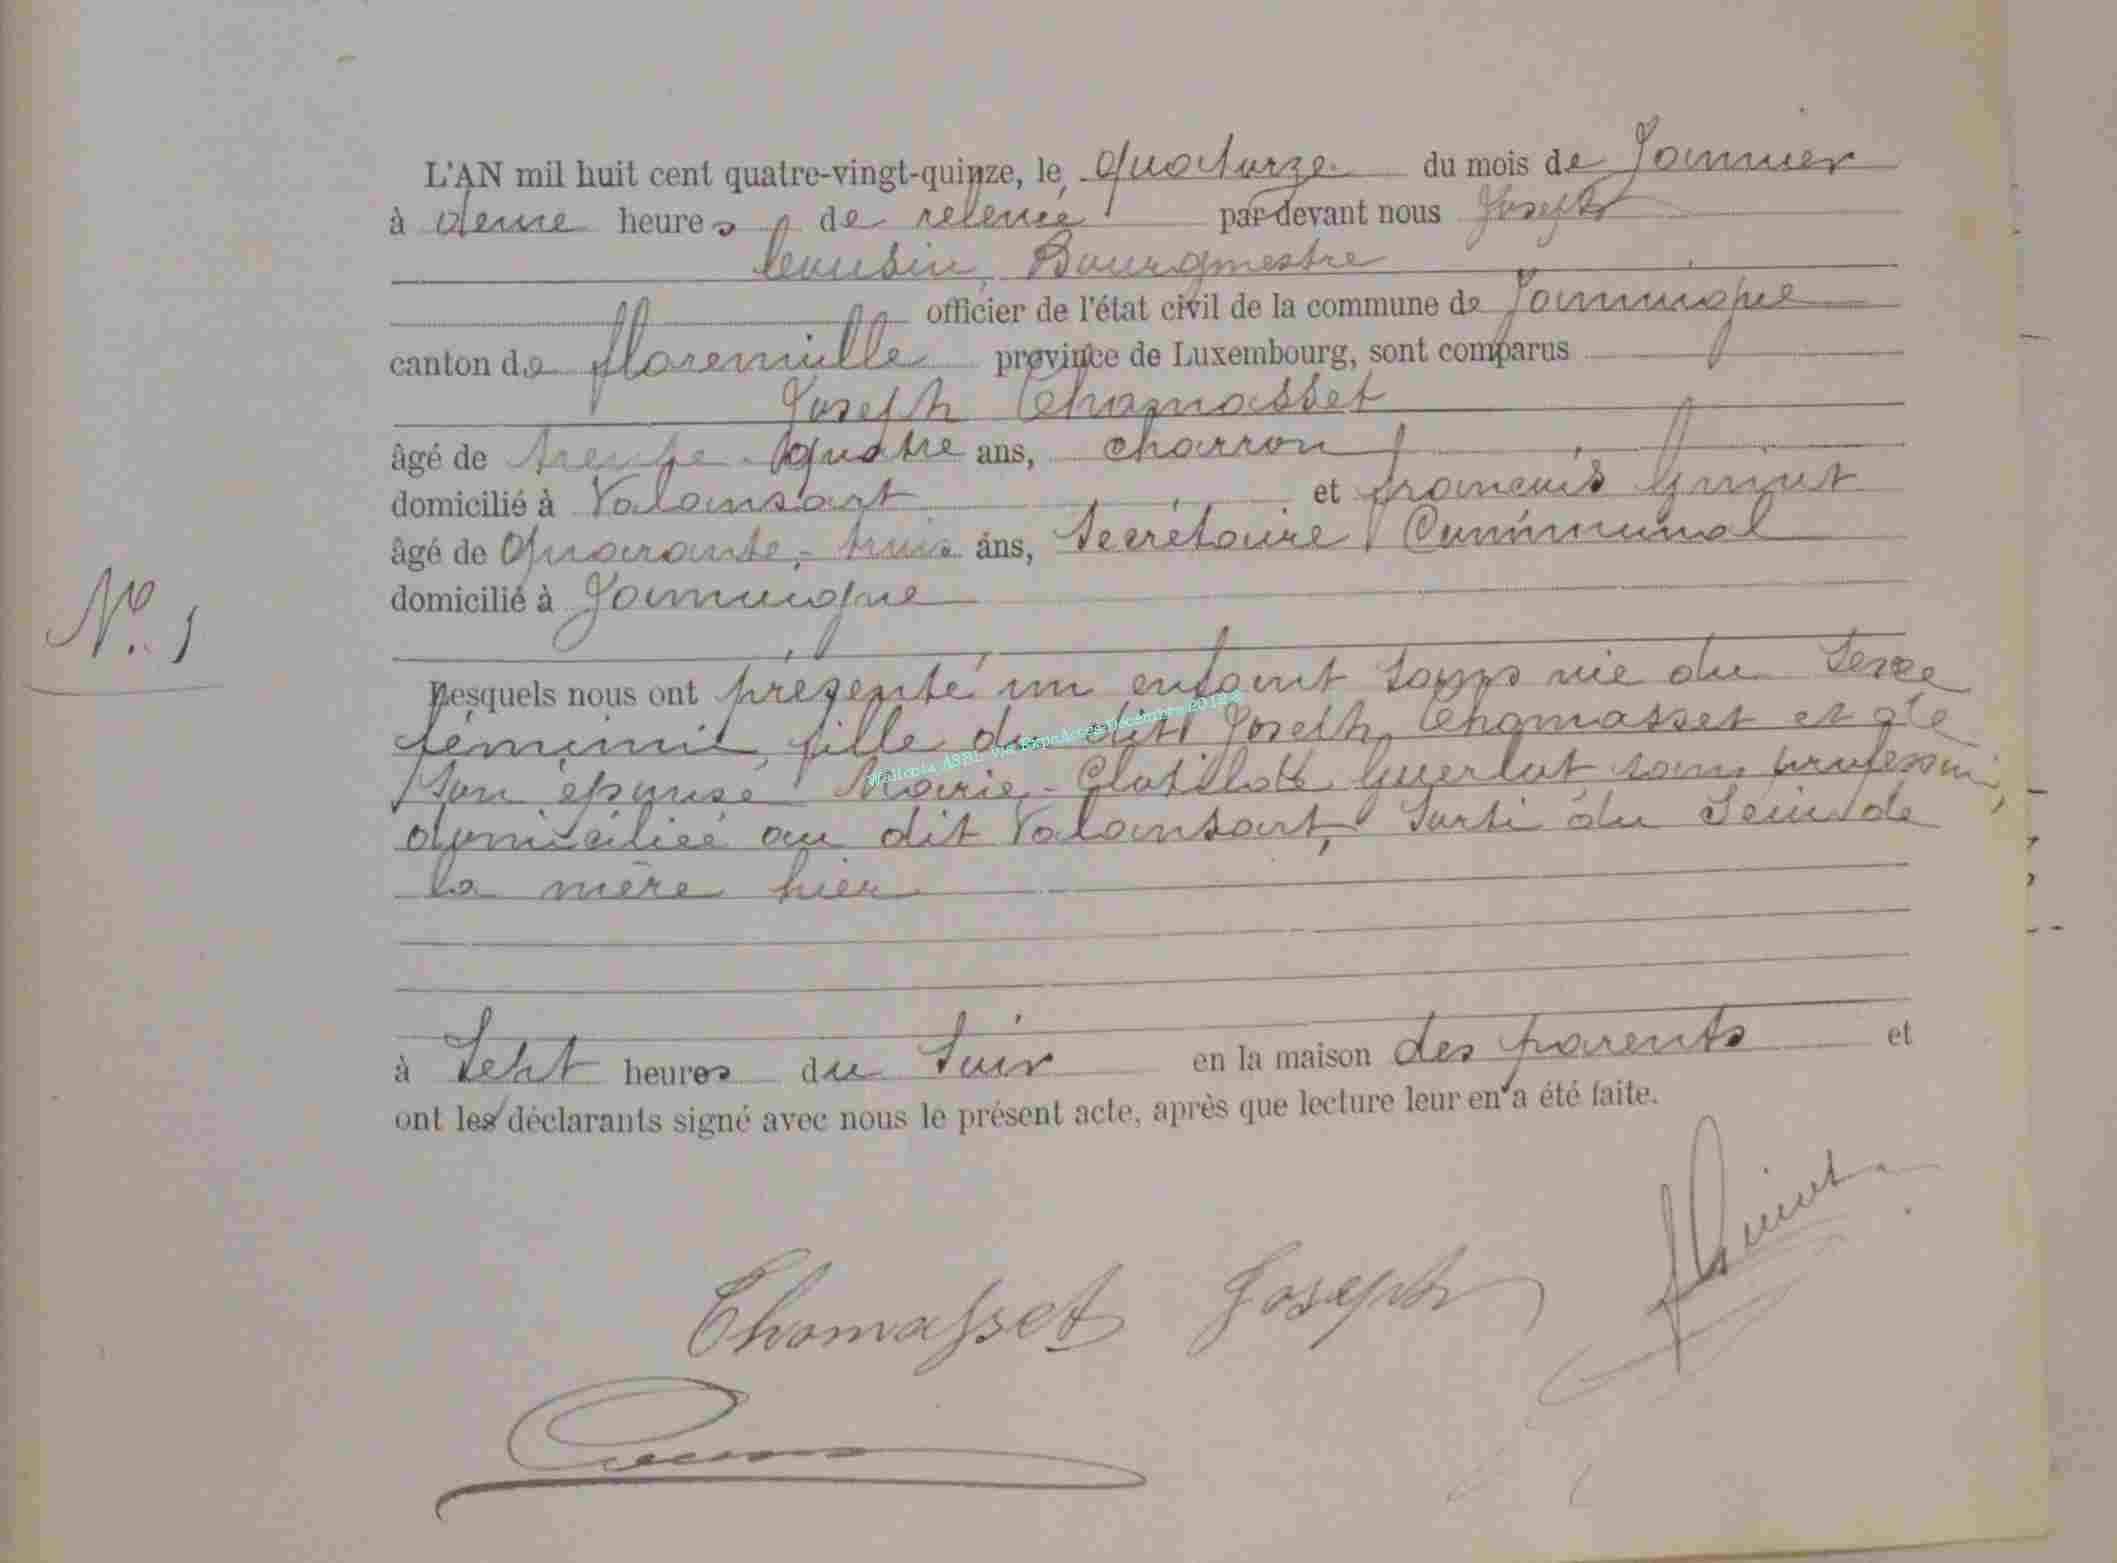 L'AN mil huit cent quatre-vingt-quinze, le quatorze du mois de Janvier
à deux heures de relevée par-devant nous Joseph
Cousin, Bourgmestre
officier de l'état civil de la commune de Jamoigne
canton de florenville province de Luxembourg, sont comparus
Joseph Thomasset
âgé de trente-quatre ans, charron
domicilié à Valansart et françois
âgé de quarante-trois ans, Secrétaire Communal
domicilié à Jamoigne
N°. 1
Lesquels nous ont présenté un enfant sans vie du sexe
féminin, fille du dit Joseph Thomasset et de
son épouse Marie-Clotilde Guerlot sans profession,
domiciliée au dit Valansart, sorti du sein de
la mère hier
à Sept heures du Soir en la maison des parents et
ont les déclarants signé avec nous le présent acte, après que lecture leur en a été faite.
Thomasset Joseph